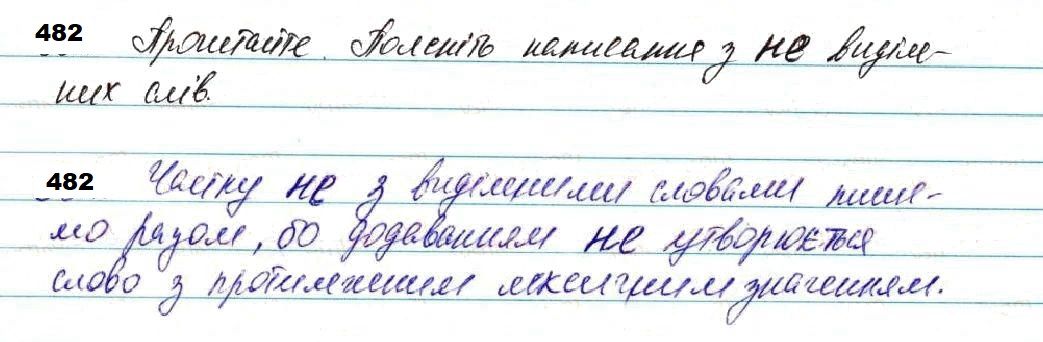 482 Прочитайте. Поясніть написання з не виділе-
них слів.
482 Частку не з виділеними словами пише-
мо разом, бо додаванням не утворюється
слово з протилежним лексичним значенням.